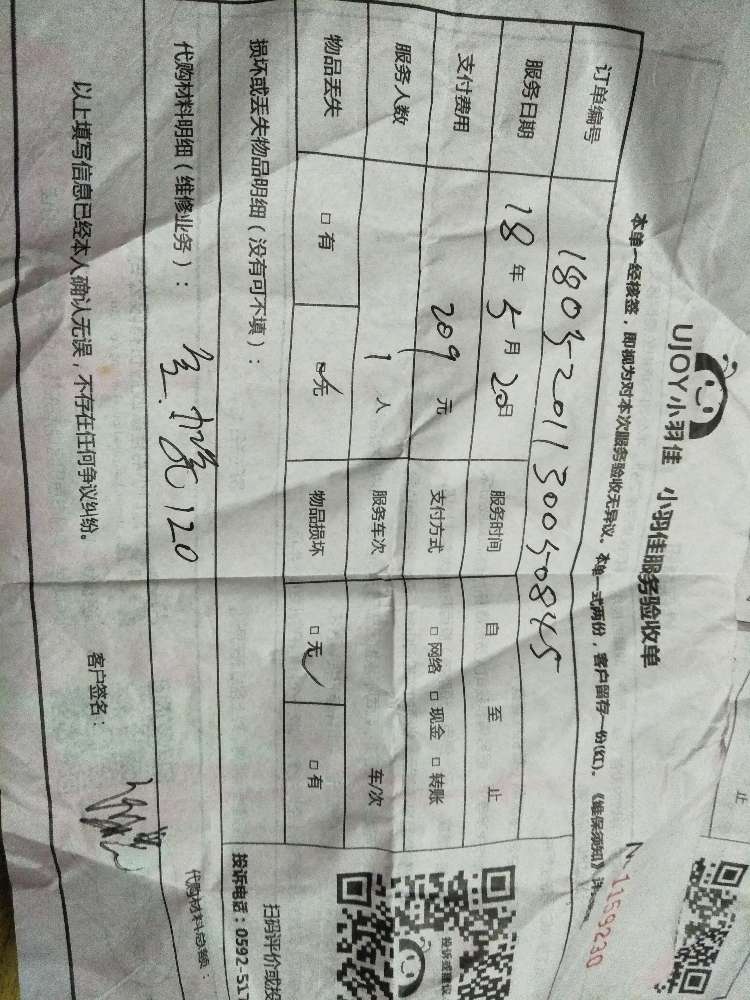 UJOY小羽佳 小羽佳服务验收单
本单一经核签，即视为对本次服务验收无异议。本单一式两份，客户留存一份(红)。《维保须知》
11592
订单编号 1803-201130050845
服务日期 18 年 5 月 20 日 服务时间 自 至 止
支付费用 209 元 支付方式 □ 网络 □ 现金 □ 转账
服务人数 1 人 服务车次 车/次
物品丢失 □ 有 □ 无 物品损坏 □ 无 □ 有
损坏或丢失物品明细（没有可不填）：
代购材料明细（维修业务）： 120
代购材料总额：
以上填写信息已经本人确认无误，不存在任何争议纠纷。 客户签名：
投诉或建议
扫码评价或投
投诉电话：0592-517
止